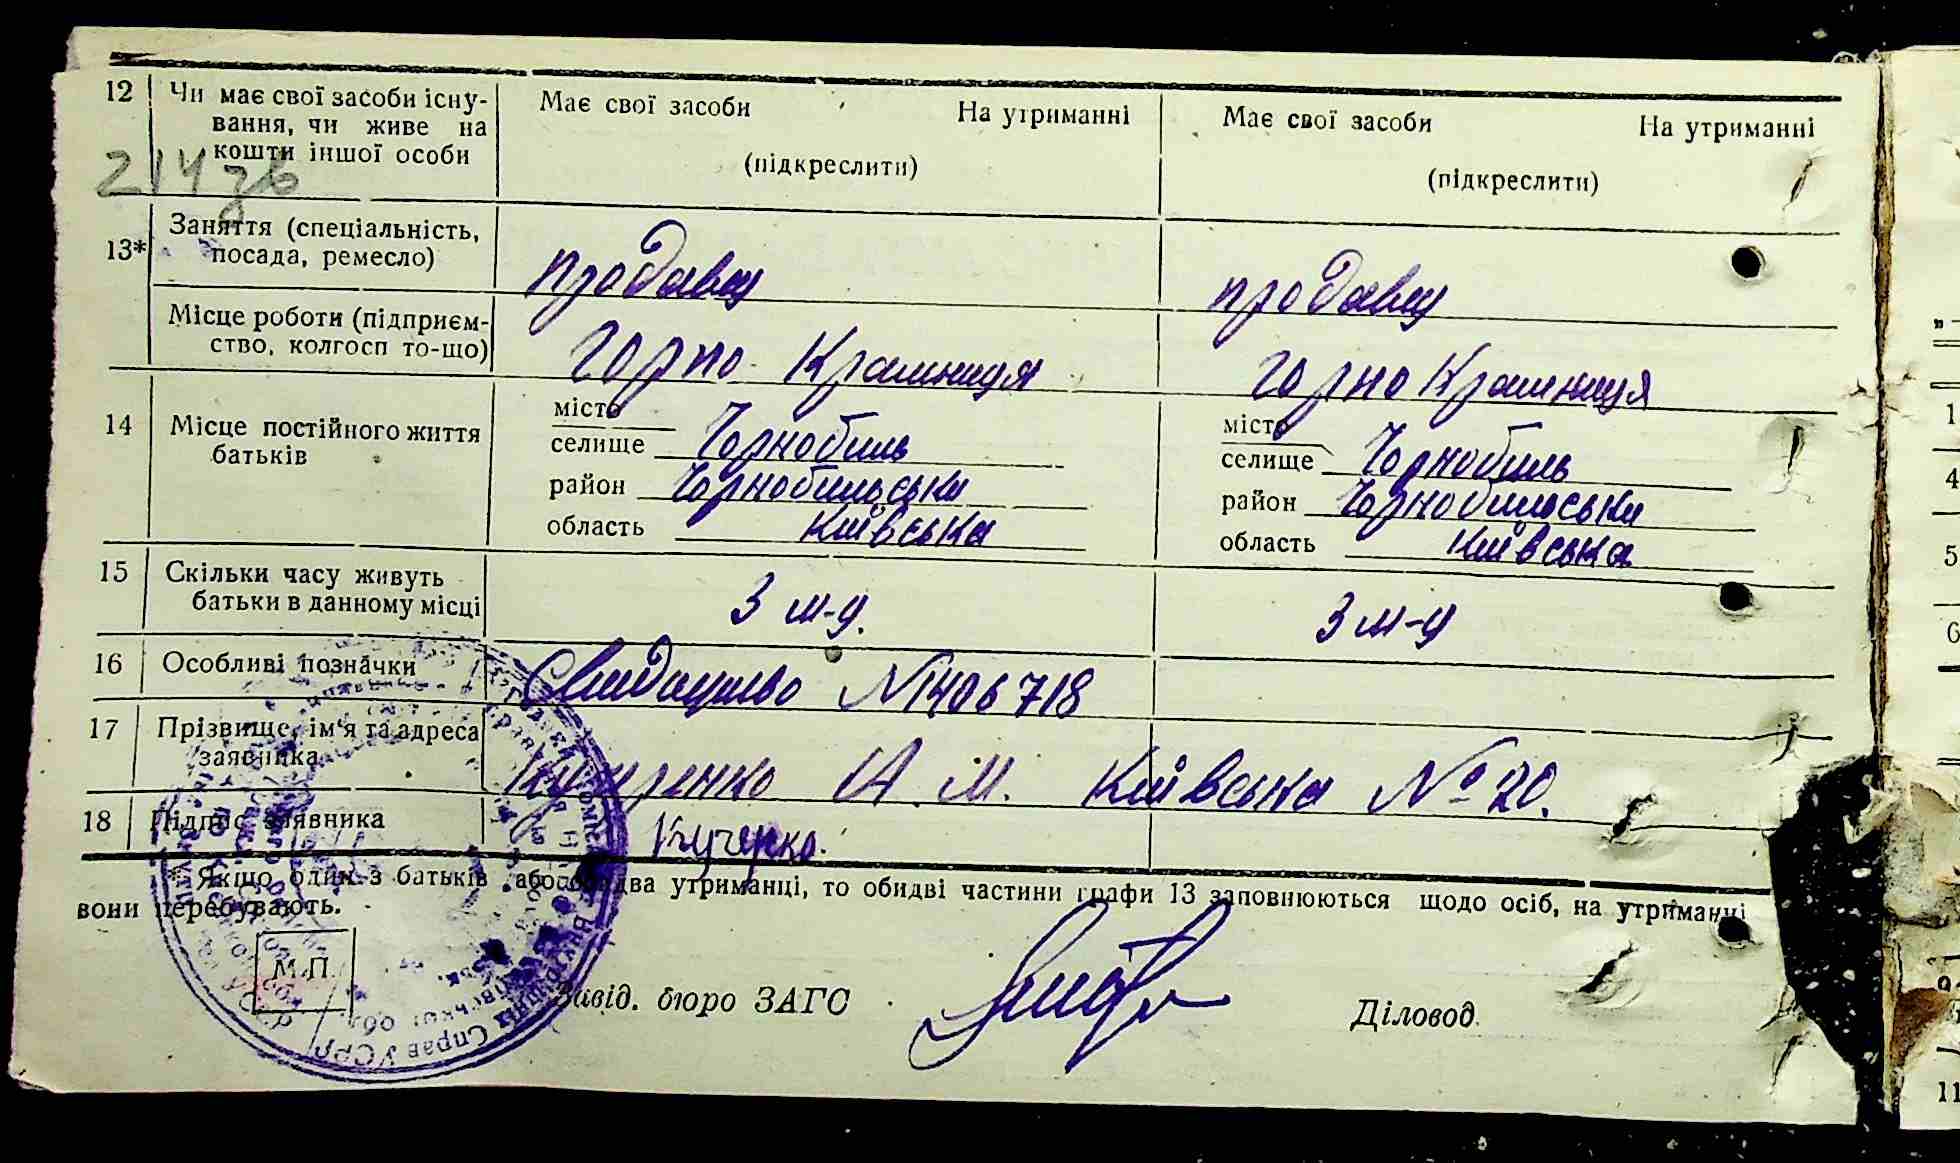 12 Чи має свої засоби існу- Має свої засоби На утриманні Має свої засоби На утриманні
вання, чи живе на
кошти іншої особи (підкреслити) (підкреслити)
214
13* Заняття (спеціальність, продавець продавець
посада, ремесло)
Місце роботи (підприєм- горпо Крамниця горпо Крамниця
ство, колгосп то-що)
14 Місце постійного життя місто місто
батьків селище Чорнобиль селище Чорнобиль
район Чорнобильськи район Чорнобильськи
область Київська область Київська
15 Скільки часу живуть 3 м-ц. 3 м-ц
батьки в данному місці
16 Особливі позначки Свидоцтво №1406718
17 Прізвище, ім'я та адреса Кучеренко А. М. Київська № 20.
заявника
18 Підпис заявника Кучерко.
* Якщо один з батьків або два утриманці, то обидві частини графи 13 заповнюються щодо осіб, на утриманні
вони перебувають.
М.П.
Завід. бюро ЗАГС Діловод
Справ УСРР